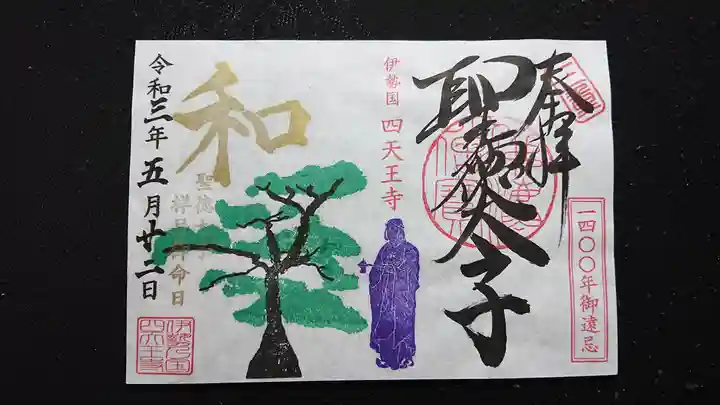 奉拝
一四〇〇年御遠忌
聖徳太子
伊勢国 四天王寺
和
聖徳太子
祥月命日
令和三年五月廿二日